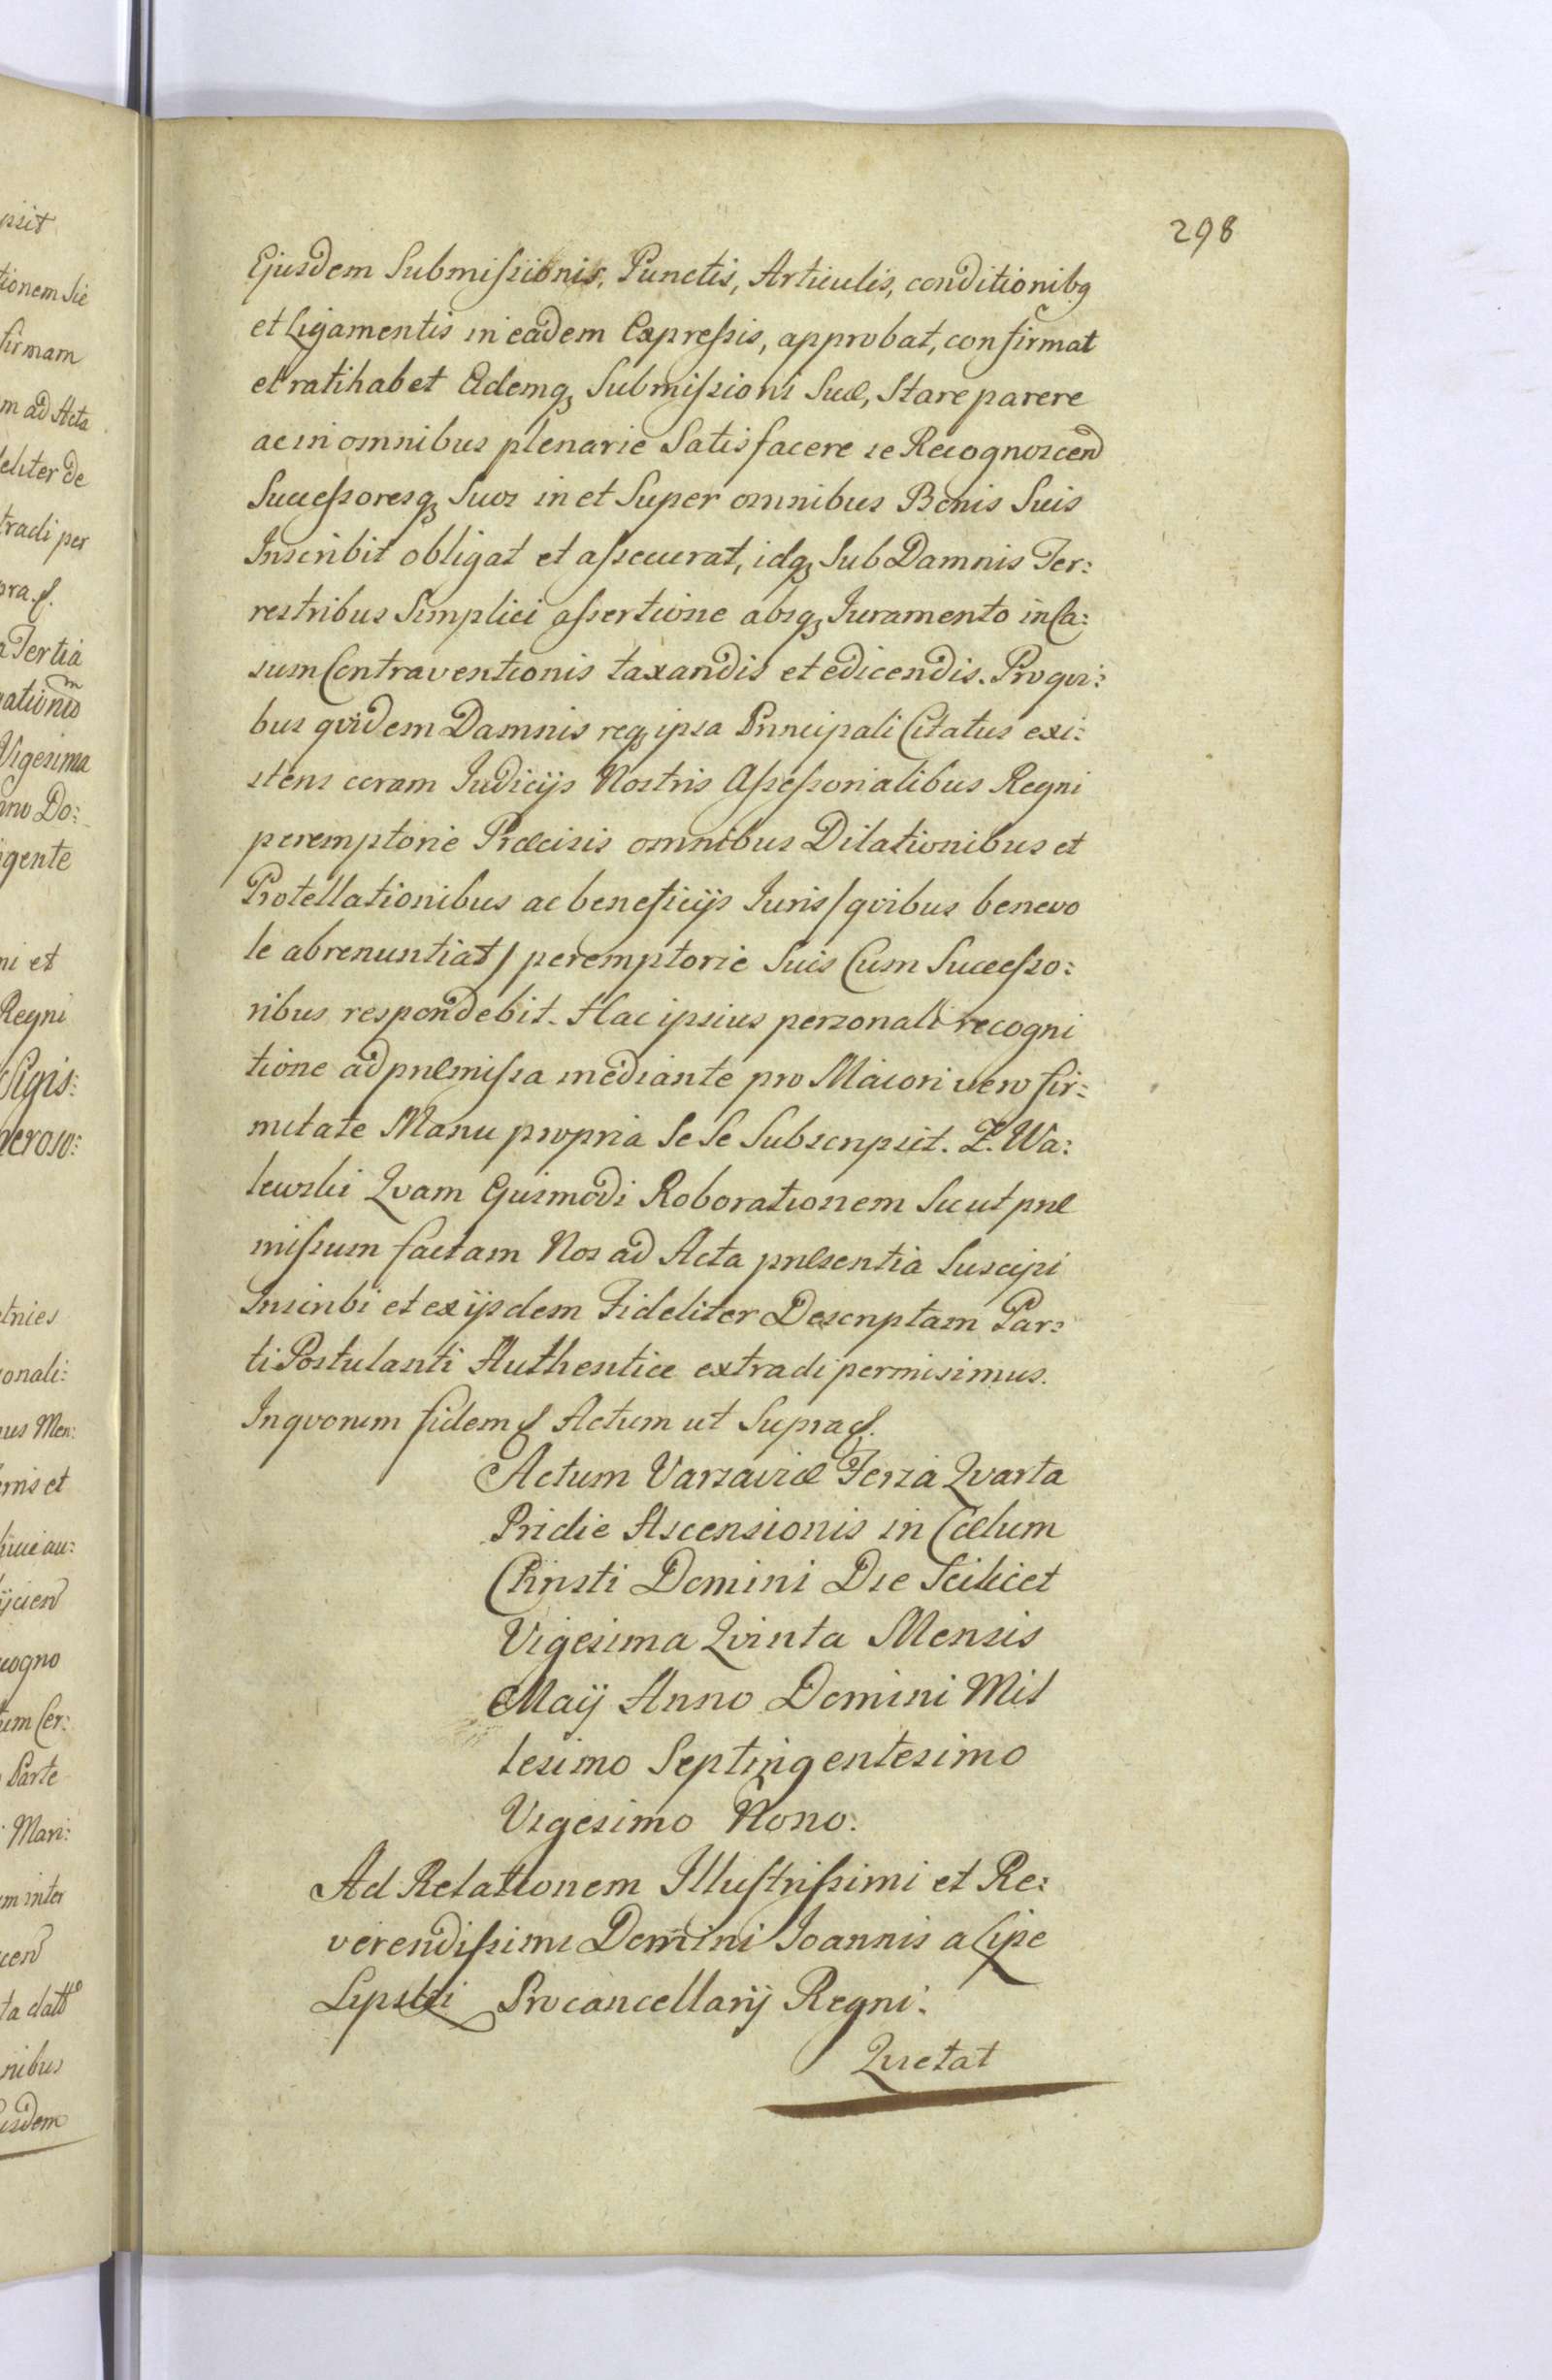 298
Ejusdem Submissionis, Punctis, Articulis, conditionibq
et Ligamentis in eadem Expressis, approbat, confirmat
et ratihabet Edemq, Submissioni Suæ, Stare parere
ac in omnibus plenarie Satisfacere se Recognoscend
Successoresq, Suos in et Super omnibus Bonis Suis
Inscribit obligat et assecurat, idq, Sub Damnis Ter:
restribus Simplici assertione absq, Iuramento in Ca:
sum Contraventionis taxandis et edicendis. Pro qvi:
bus qvidem Damnis req, ipsa Principali Citatus exi:
stens coram Iudicijs Nostris Assessorialibus Regni
peremptorie Præcisis omnibus Dilationibus et
Protellationibus ac beneficijs Iuris / qvibus benevo
le abrenuntiat / peremptorie Suis Cum Successo:
ribus respondebit. Hac ipsius personali recogni
tione ad præmissa mediante pro Maiori vero fir:
mitate Manu propria Se Se Subscripsit. Z. Wa:
lewski Qvam Ejusmodi Roborationem Sicut præ
missum factam Nos ad Acta præsentia Suscipi
Inscribi et ex ijsdem Fideliter Descriptam Par:
ti Postulanti Authentice extradi permisimus.
In qvorum fidem & Actum ut Supra &.
Actum Varsaviæ Feria Qvarta
Pridie Ascensionis in Cœlum
Christi Domini Die Scilicet
Vigesima Qvinta Mensis
Maij Anno Domini Mil
lesimo Septingentesimo
Vigesimo Nono.
Ad Relationem Illustrissimi et Re:
verendissimi Domini Ioannis a Lipe
Lipski Procancellarij Regni.
Qvietat